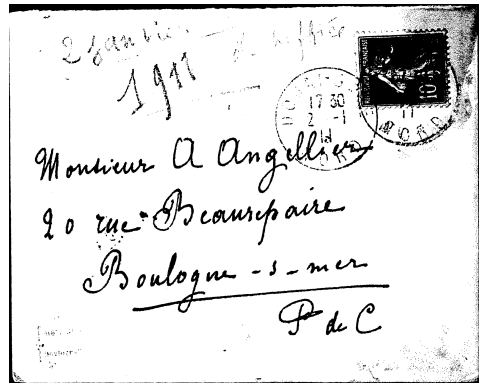 2 janvier
1911
17 30
2 -1
11
NORD
10c
Monsieur A Angellier
20 rue Beaurepaire
Boulogne-s-mer
P. de C